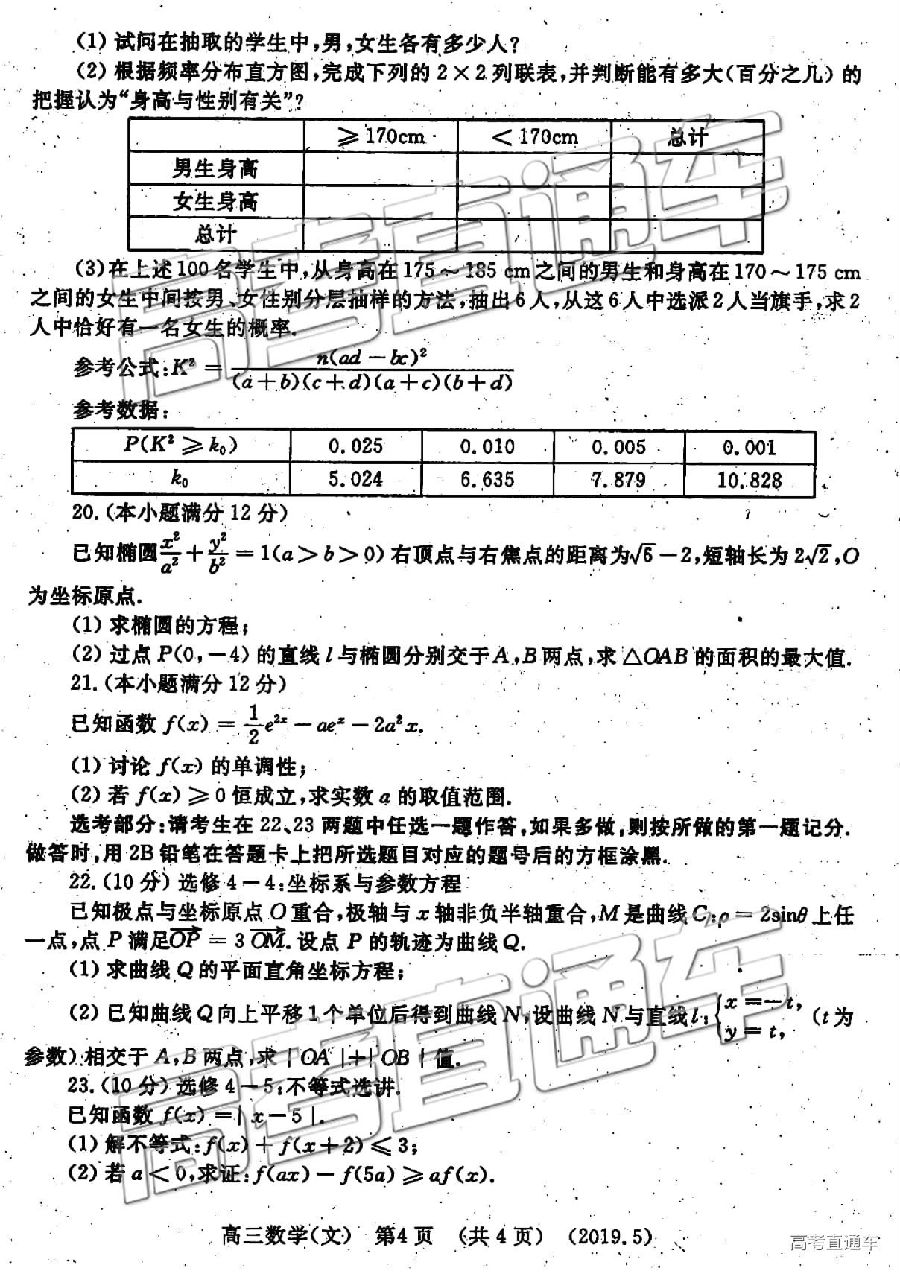 (1) 试问在抽取的学生中,男,女生各有多少人?
(2) 根据频率分布直方图,完成下列的 2×2 列联表,并判断能有多大(百分之几) 的
把握认为“身高与性别有关”?
≥170cm <170cm 总计
男生身高
女生身高
总计
(3)在上述100名学生中,从身高在175~185 cm之间的男生和身高在170~175 cm
之间的女生中间按男、女性别分层抽样的方法,抽出6人,从这6人中选派2人当旗手,求2
人中恰好有一名女生的概率.
参考公式:K² = n(ad-bc)² / (a+b)(c+d)(a+c)(b+d)
参考数据:
P(K²≥k₀) 0.025 0.010 0.005 0.001
k₀ 5.024 6.635 7.879 10.828
20.(本小题满分 12 分)
已知椭圆 x²/a² + y²/b² = 1(a>b>0) 右顶点与右焦点的距离为√6-2,短轴长为 2√2,O
为坐标原点.
(1) 求椭圆的方程;
(2) 过点 P(0,-4) 的直线 l 与椭圆分别交于 A,B 两点,求 △OAB 的面积的最大值.
21.(本小题满分 12 分)
已知函数 f(x) = 1/2 e²ˣ - aeˣ - 2a²x.
(1) 讨论 f(x) 的单调性;
(2) 若 f(x)≥0 恒成立,求实数 a 的取值范围.
选考部分:请考生在 22、23 两题中任选一题作答,如果多做,则按所做的第一题记分.
做答时,用 2B 铅笔在答题卡上把所选题目对应的题号后的方框涂黑.
22.(10 分) 选修 4-4:坐标系与参数方程
已知极点与坐标原点 O 重合,极轴与 x 轴非负半轴重合,M 是曲线 C:ρ=2sinθ 上任
一点,点 P 满足OP = 3 OM. 设点 P 的轨迹为曲线 Q.
(1) 求曲线 Q 的平面直角坐标方程;
(2) 已知曲线 Q 向上平移 1 个单位后得到曲线 N,设曲线 N 与直线 l:{x=-t, y=t, (t 为
参数) 相交于 A,B 两点,求 |OA|+|OB| 值.
23.(10 分) 选修 4-5:不等式选讲.
已知函数 f(x) =|x-5|.
(1) 解不等式:f(x)+f(x+2)≤3;
(2) 若 a<0,求证:f(ax)-f(5a)≥af(x).
高三数学(文) 第4页 (共4页) (2019.5)
高考直通车
高考直通车
高考直通车